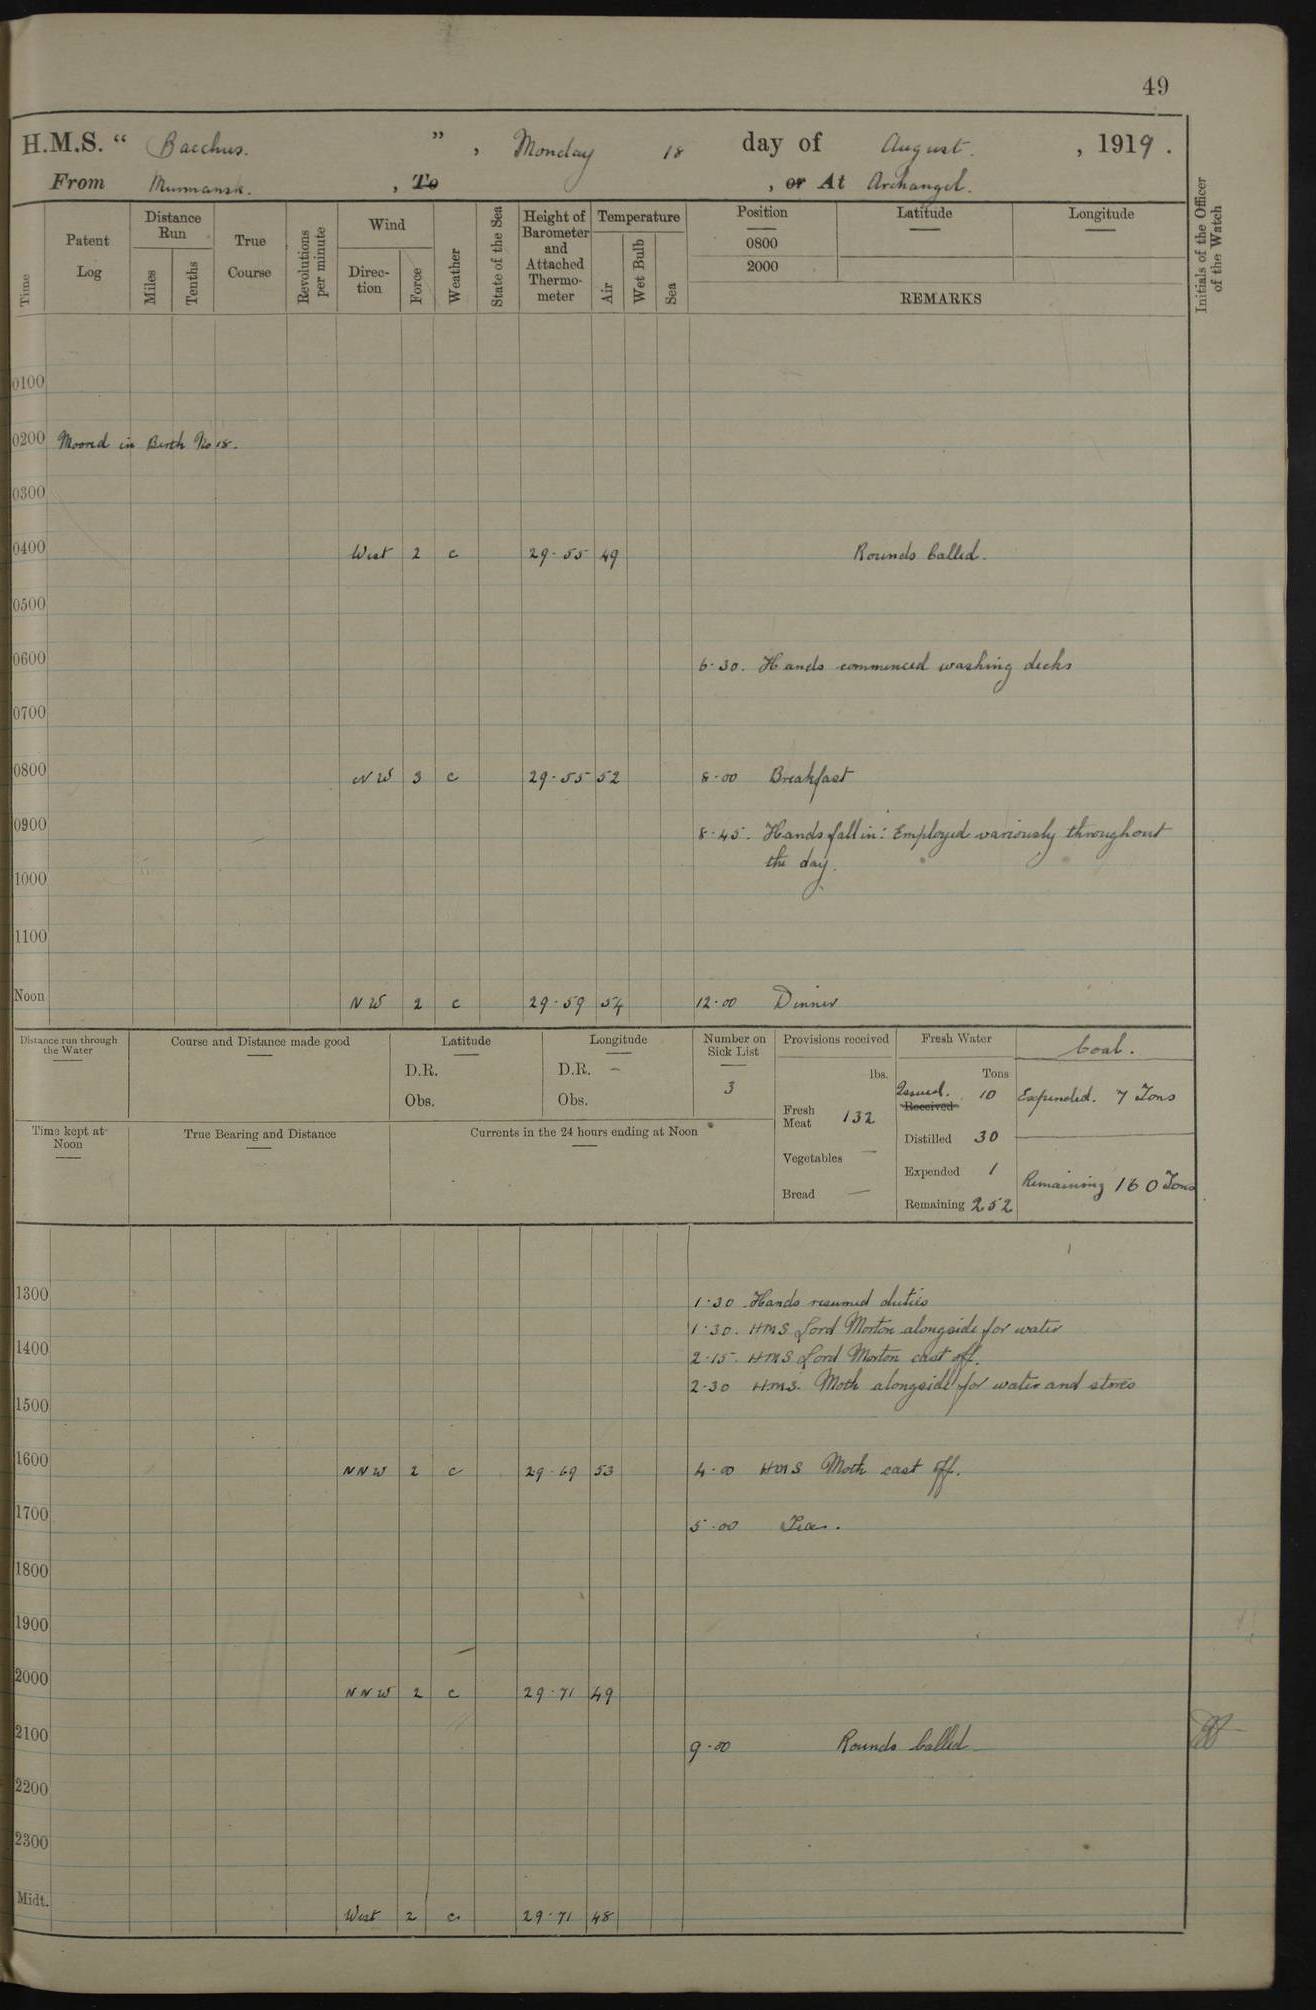 49
H.M.S. “ Bacchus. ” , Monday 18 day of August. , 1919.
From Murmansk. , To , or At Archangel.
Time
Patent Log
Distance Run
Miles
Tenths
True Course
Revolutions per minute
Wind
Direc-tion
Force
Weather
State of the Sea
Height of Barometer and Attached Thermo-meter
Temperature
Air
Wet Bulb
Sea
Position
0800
2000
Latitude
Longitude
REMARKS
Initials of the Officer of the Watch
0100
0200 Moored in Berth No 18.
0300
0400 West 2 c 29·55 49 Rounds Called.
0500
0600 6·30. Hands commenced washing decks
0700
0800 NW 3 c 29·55 52 8·00 Breakfast
0900 8·45. Hands fall in: Employed variously throughout
the day.
1000
1100
Noon NW 2 c 29·59 54 12·00 Dinner
Distance run through the Water
Course and Distance made good
Latitude
D.R.
Obs.
Longitude
D.R. –
Obs.
Number on Sick List
3
Provisions received
lbs.
Fresh Meat 132
Vegetables —
Bread —
Fresh Water
Tons
Issued. Received 10
Distilled 30
Expended 1
Remaining 252
Coal.
Expended. 7 Tons
Remaining 160 Tons
Time kept at Noon
True Bearing and Distance
Currents in the 24 hours ending at Noon
1300 1·30. Hands resumed duties
1·30. HMS Lord Morton alongside for water
1400 2·15. HMS Lord Morton cast off.
2·30 HMS. Moth alongside for water and stores
1500
1600 NNW 2 c 29·69 53 4·00 HMS Moth cast off.
1700 5·00 Tea.
1800
1900
2000 NNW 2 c 29·71 49
2100 9·00 Rounds Called
2200
2300
Midt. West 2 c. 29·71 48